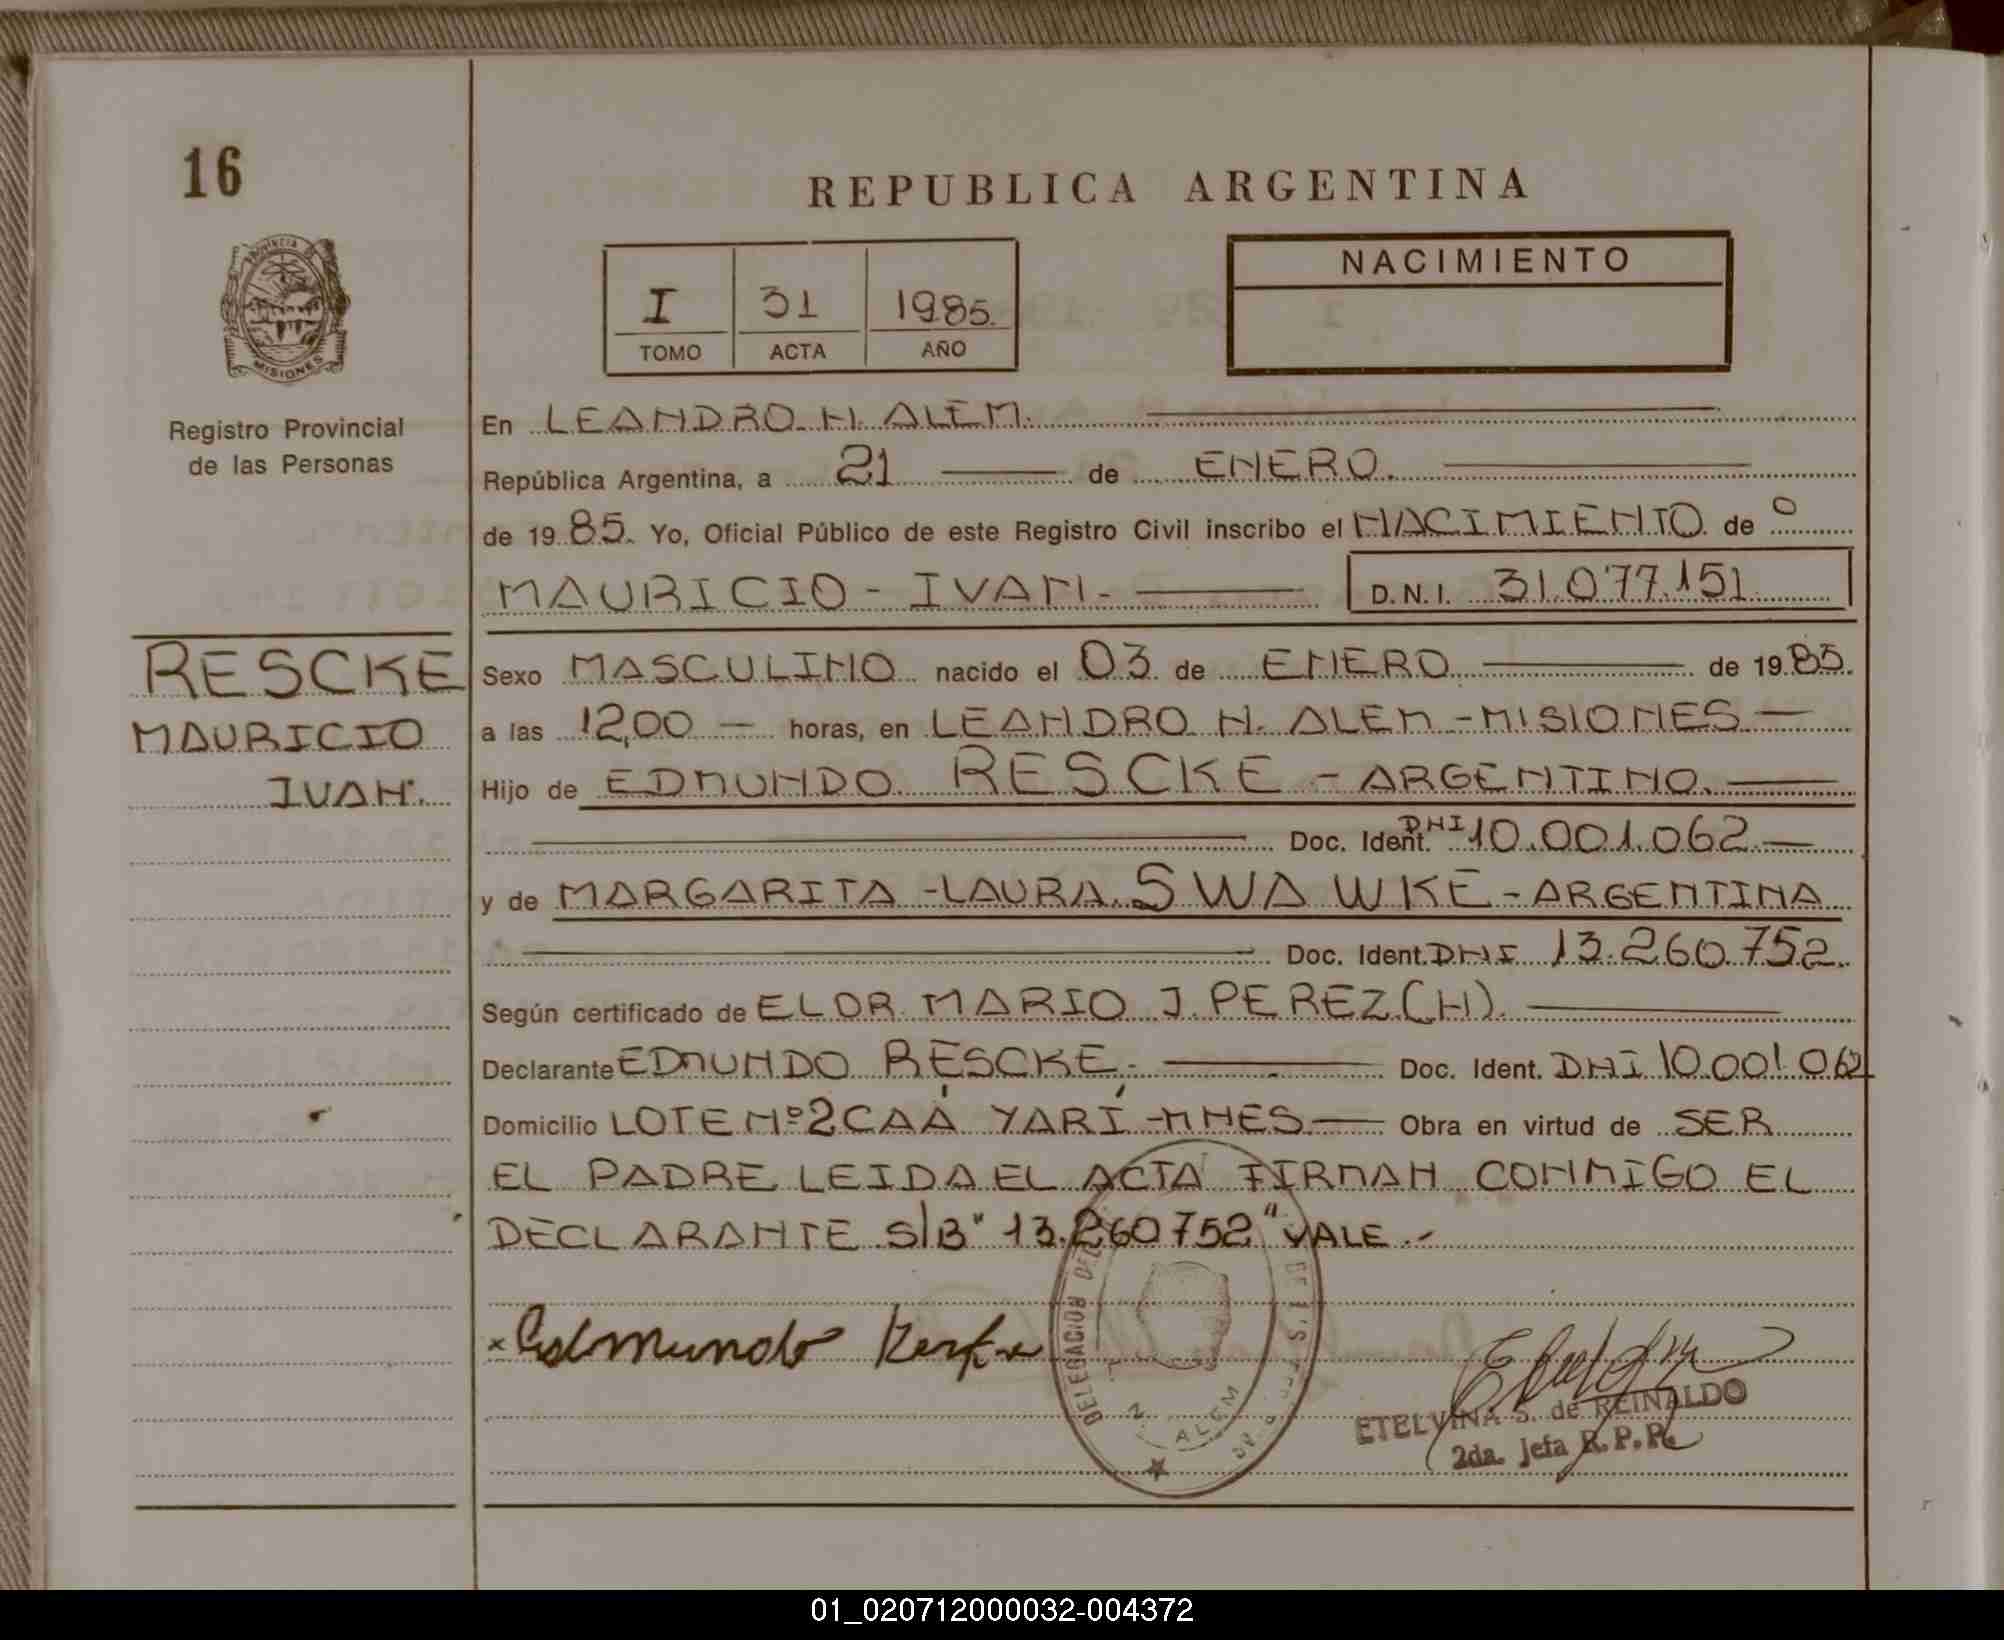 16
REPUBLICA ARGENTINA
PROVINCIA DE
MISIONES
I 31 1985.
TOMO ACTA AÑO
NACIMIENTO
Registro Provincial
de las Personas
En LEANDRO N. ALEM.
República Argentina, a 21 de ENERO.
de 1985. Yo, Oficial Público de este Registro Civil inscribo el NACIMIENTO de
MAURICIO - IVAN. - D.N.I. 31.077.151
RESCKE
MAURICIO
IVAN.
Sexo MASCULINO nacido el 03 de ENERO de 1985.
a las 12,00 - horas, en LEANDRO N. ALEM - MISIONES -
Hijo de EDMUNDO RESCKE - ARGENTINO.
Doc. Ident. DNI 10.001.062 -
y de MARGARITA - LAURA SWAWKE - ARGENTINA
Doc. Ident. DNI 13.260.752.
Según certificado de EL DR. MARIO J. PEREZ (H).
Declarante EDMUNDO RESCKE. - Doc. Ident. DNI 10.001.062
Domicilio LOTE Nº 2 CAÁ YARÍ - MNES - Obra en virtud de SER
EL PADRE LEIDA EL ACTA FIRMAN CONMIGO EL
DECLARANTE S/B "13.260752" VALE. -
x Edmundo Reske
DELEGACION DEL
ALEM
ETELVINA S. de REINALDO
2da. Jefa R.P.P.
01_020712000032-004372